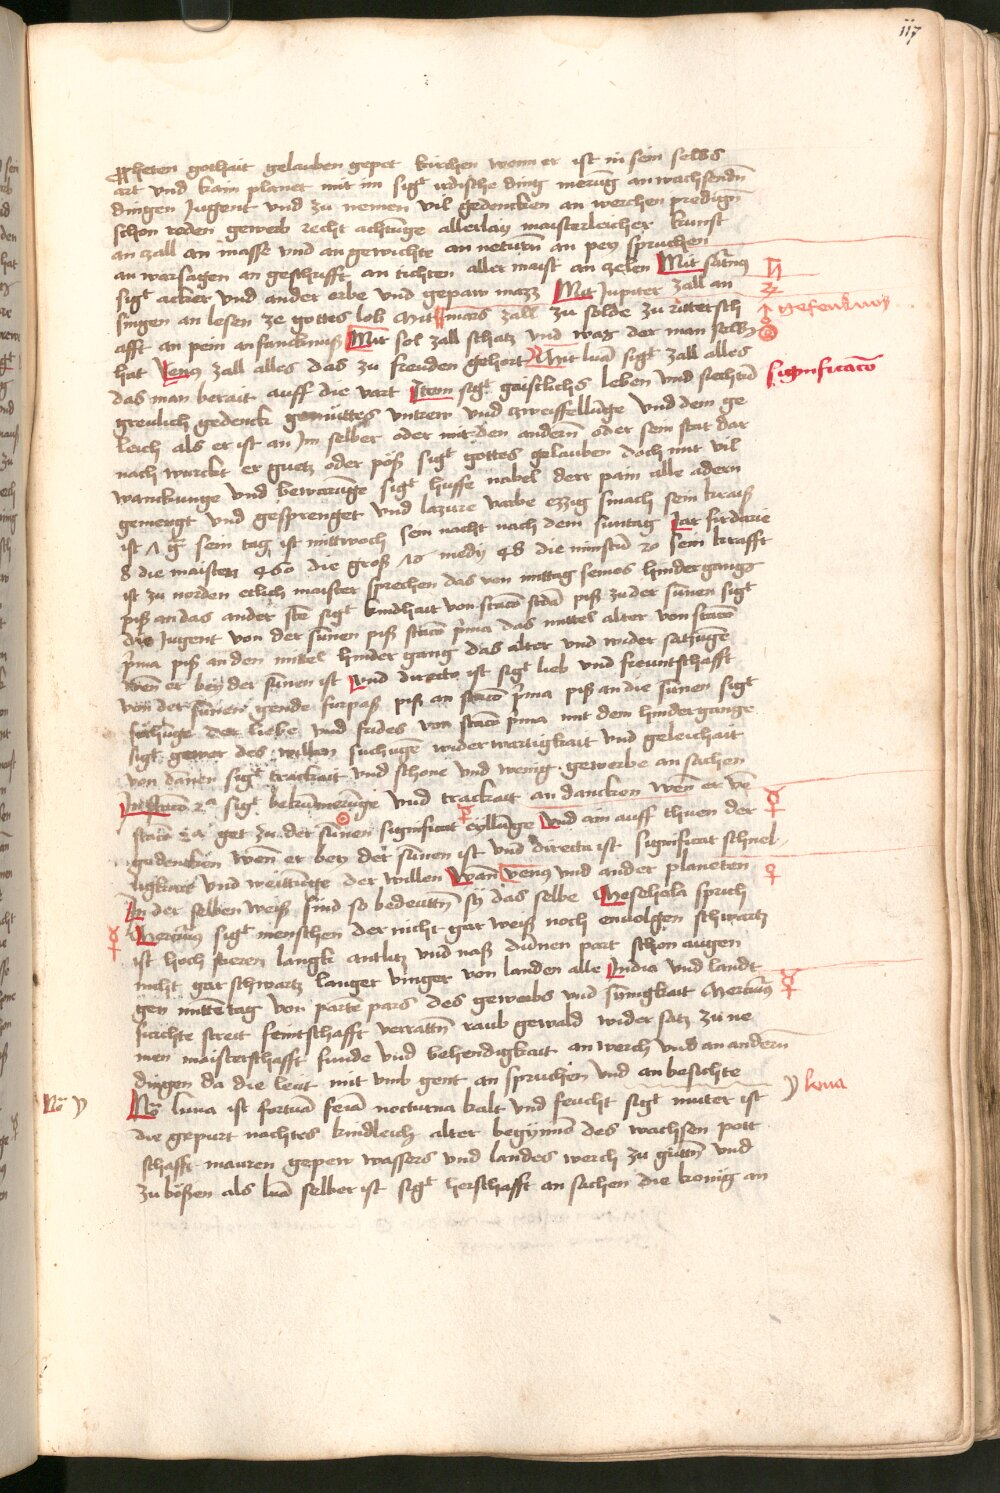 117
ppheten gothait gelauben gepet kirchen wenn er ist in sein selbs
art und kain planet mit im sigt irdische ding merung anwachsendn
dingen Jugent und zu nemen vil gedencken an werchen predign
schon reden gewerb recht achtunge allerlay maisterleicher kunst
an zall an masse und an gewichte an neturn an pey spruchen
an warsagen an geschrifft an tichten aller maist an zelen Mit saturnus
sigt acker und ander erbe und gepaw mazz Mit Jupiter zall an
singen an lesen ze gottes lob Mit mars zall zu solde zu rittersch
afft an pein an fancknuß Mit sol zall schatz und waz der man selbs
hat Venus zall alles das zu freuden gehort Mit luna sigt zall alles
das man berait auff die vart Item sigt gaistlichs leben und siechtu
significato
greulich gedenck gemuttes untrew und zweiffellunge und dem ge
leich als er ist an Im selber oder mit den andern oder sein stat dar
nach wurckt er guetz oder pöß sigt gottes gelauben doch mit vil
wanckunge und bewarunge sigt huffe nabel derr pain alle adern
gemengt und gesprenget und lazure varbe ezzig smach sein kraiß
ist 7 g sein tag ist mittwoch sein nacht nach dem suntag Jar firdarie
8 die maisten 460 die groß 76 medij 48 die minstn 20 sein krafft
ist zu norden etlich maister sprechen das von mittag seines hindergangs
piß an das ander ste sigt kindhait von staco scda piß zu der sunen sigt
die Jugent von der sunen piß staco prima das mittel alter von staco
prima piß an den mittel hinder gang das alter und wider satzunge
wen er bey der sunen ist und directo ist sigt lieb und freuntschafft
von der sunen gende furpaß piß an staco prima piß an die sunen sigt
suchunge der liebe und frides von staco prima mit dem hindergange
sigt gewer des willen suchunge widerwartigkait und geleichait
von danen sigt trackait und schone und wenig gewerbe an sachen
In staco 2a sigt bekumerunge und trackait an dancken wen er von
staco 2a get zu der sunen significat eyllunge und ain auff thuen der
gedencken wen er bey der sunen ist und directu ist significat schnel
ligkait und weittunge der willen Wan venus und ander planeten
In der selben weiß sind so bedeuttn sy das selbe Meschala sprich
Mercurius sigt menschen der nicht gar weiß noch envolgen schwartz
ist hoch steren langk antlitz und naß dunen part schon augen
nicht gar schwartz langer vinger von landen alle India und landt
gen mittentag von parte pars des gewerbs und sinnigkait Mercurius
furchte streit feintschafft verrattn raub gewald wider satz zu ne
men maisterschafft funde und behendigkait an werch und an andern
dingen da die leut mit umb gent an spruchen und an besichte
luna
No luna ist fortuna femina nocturna kalt und feucht sigt muter ist
die gepurt nachtes kindleich alter begynnd des wachsen pott
schafft mauren gepew wassers und landes werch zu guttn und
zu bößen als luna selber ist sigt herschafft an sachen die konig an